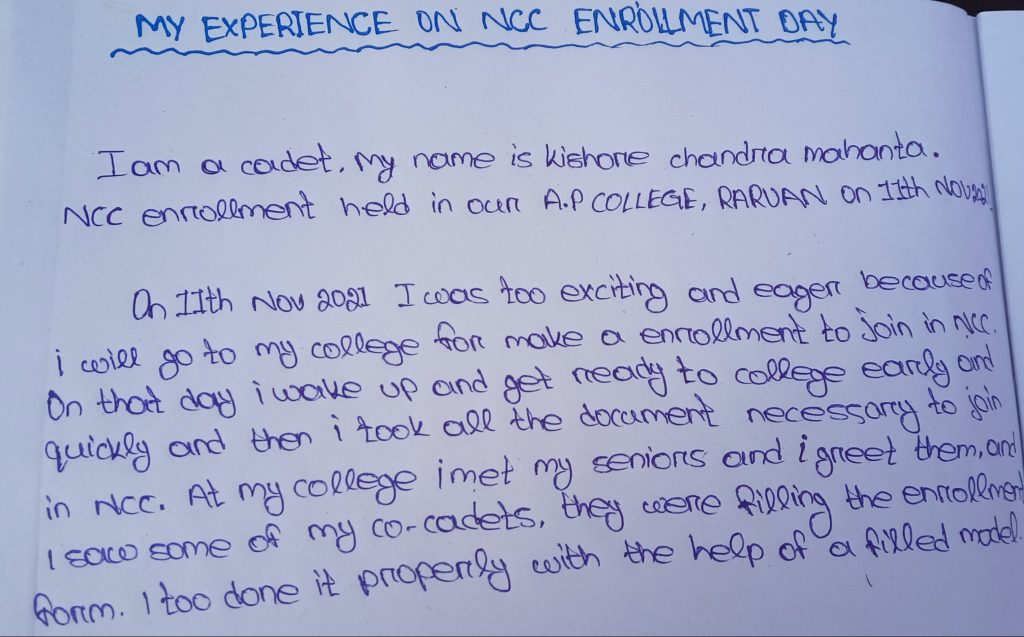 MY EXPERIENCE ON NCC ENROLLMENT DAY
I am a cadet, My name is kishore chandra mahanta.
NCC enrollment held in our A.P COLLEGE, RARUAN on 11th NOV 2021.
On 11th Nov 2021 I was too exciting and eager because of
i will go to my college for make a enrollment to join in NCC.
On that day i wake up and get ready to college early and
quickly and then i took all the document necessary to join
in NCC. At my college i met my seniors and i greet them, and
I saw some of my co-cadets, they were filling the enrollment
form. I too done it properly with the help of a filled model.